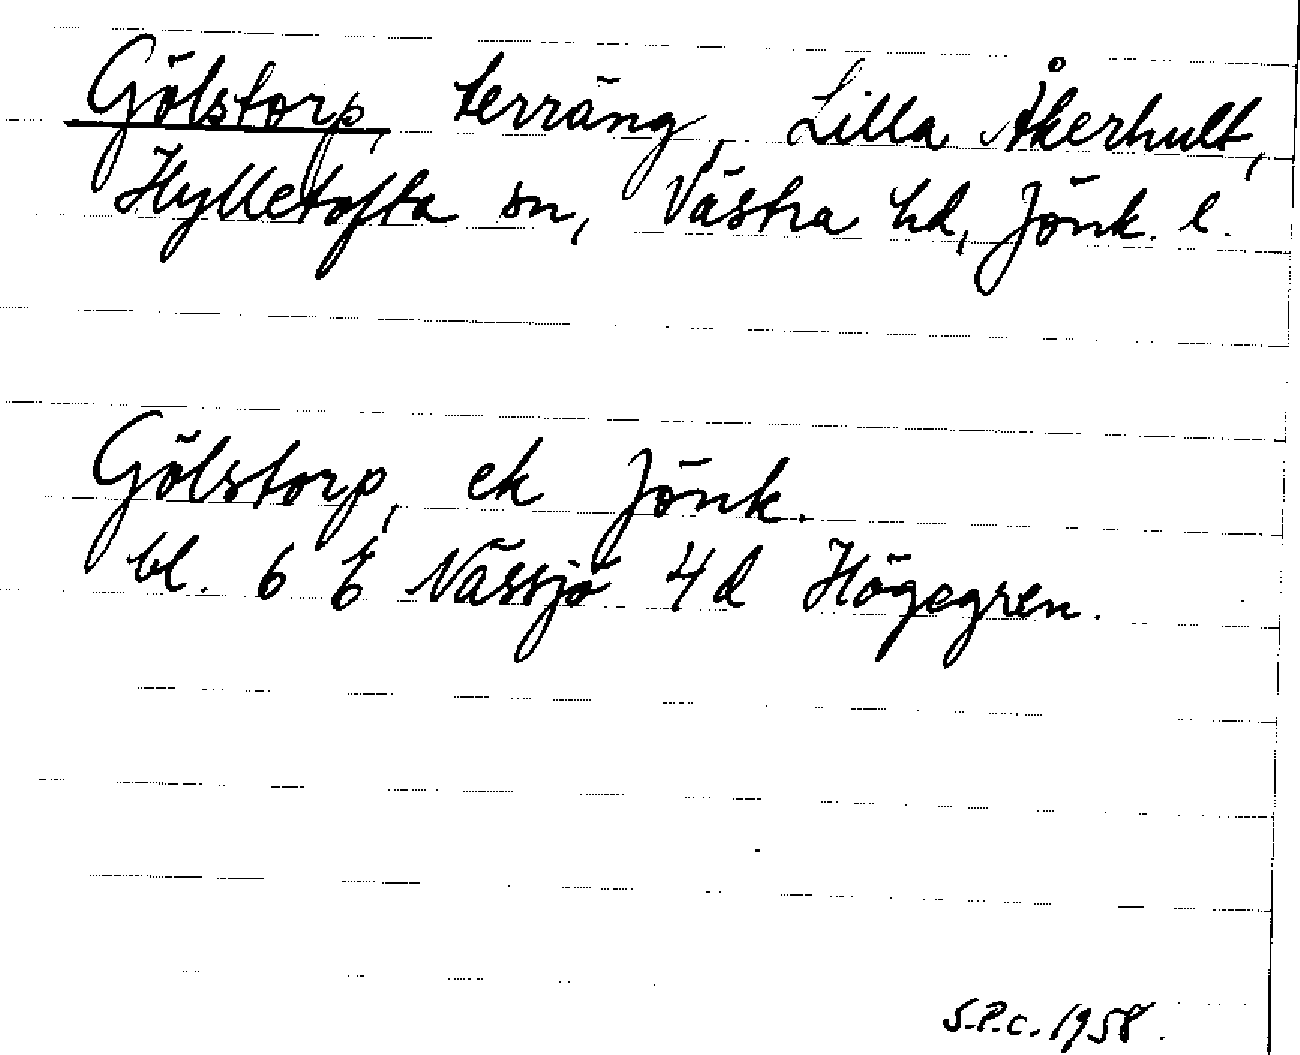 Gölstorp, terräng, Lilla Åkerhult,
Hylletofta sn, Västra hd, Jönk. l.
Gölstorp, ek Jönk.
bl. 6 E Nässjö 4d Högagren.
S.P.C. 1958.